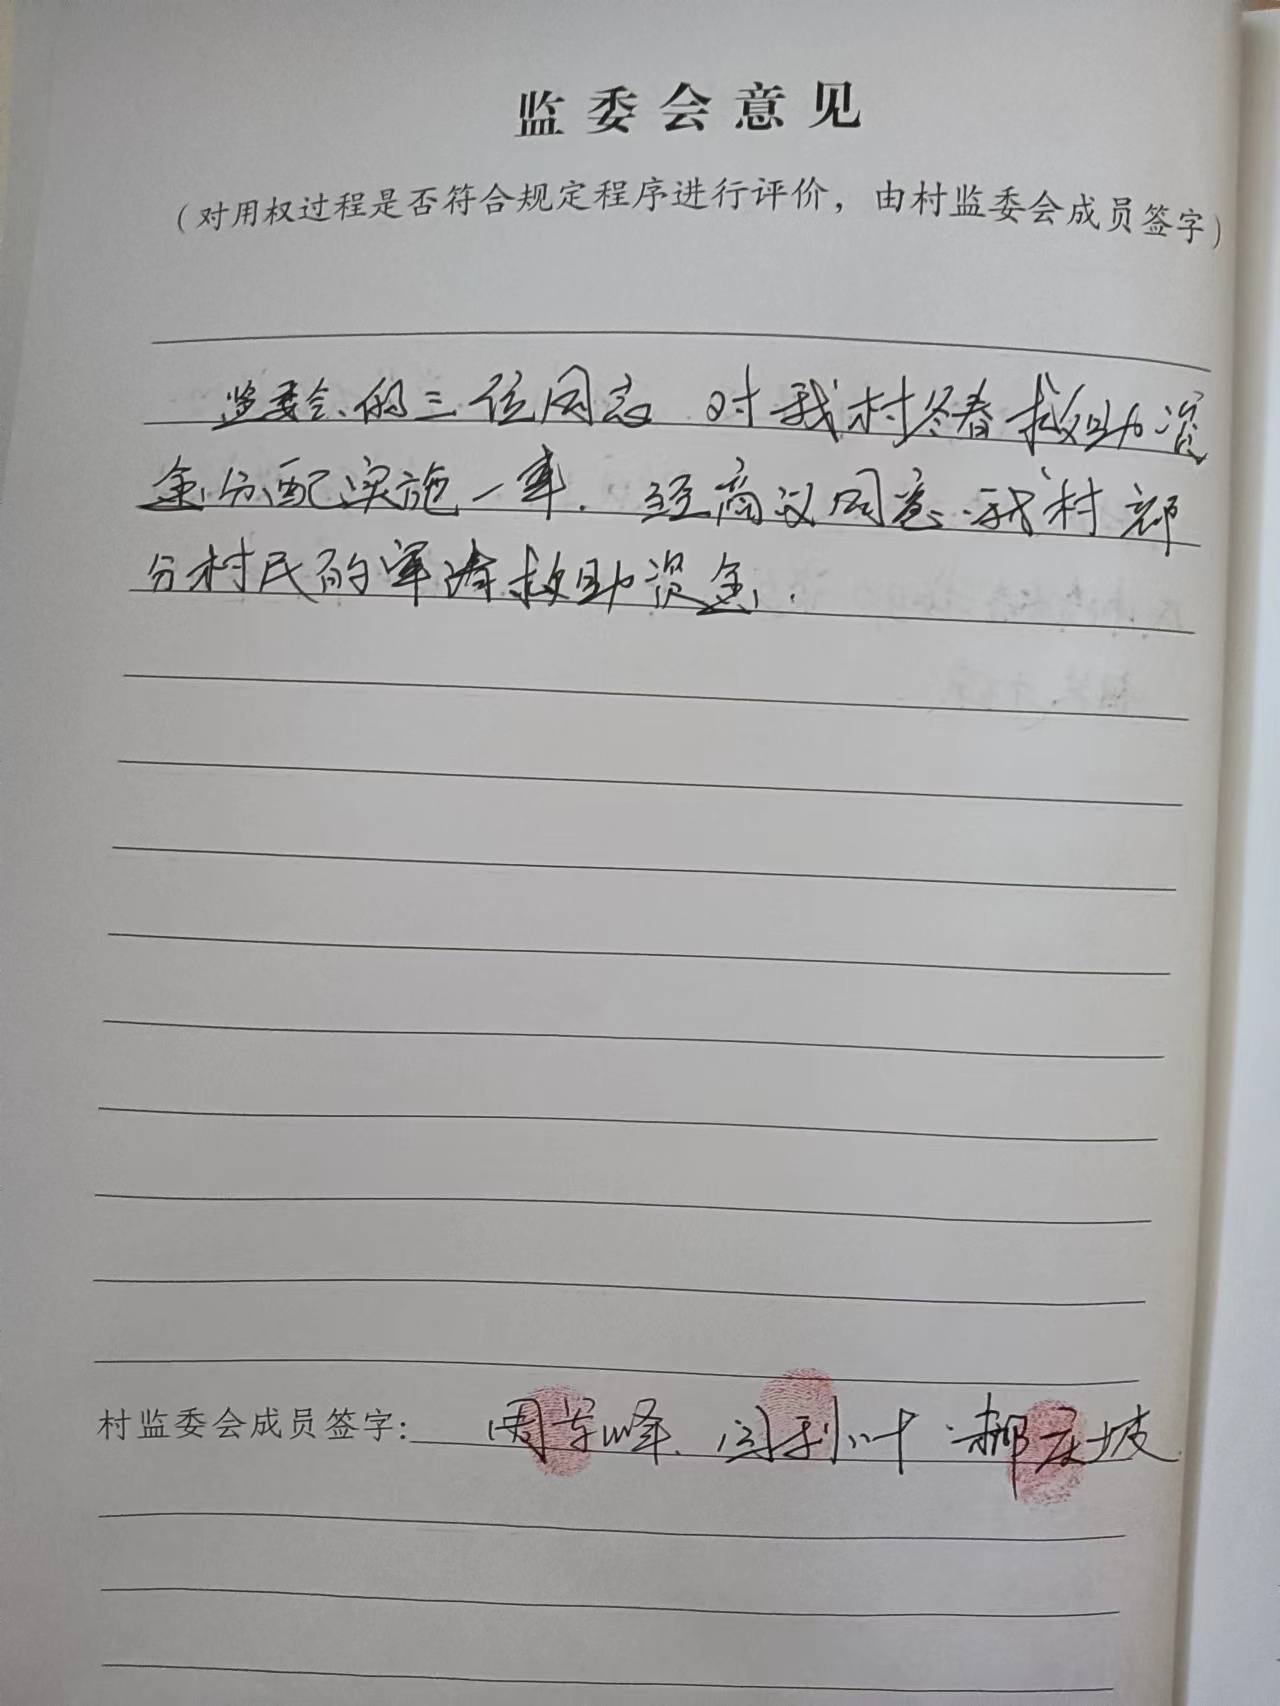 监委会意见
（对用权过程是否符合规定程序进行评价，由村监委会成员签字）
监委会的三位同志 对我村冬春救助资
金分配实施一事．经商议同意．我村部
分村民的军请救助资金．
村监委会成员签字： 周军峰．闫利叶．郝庆坡